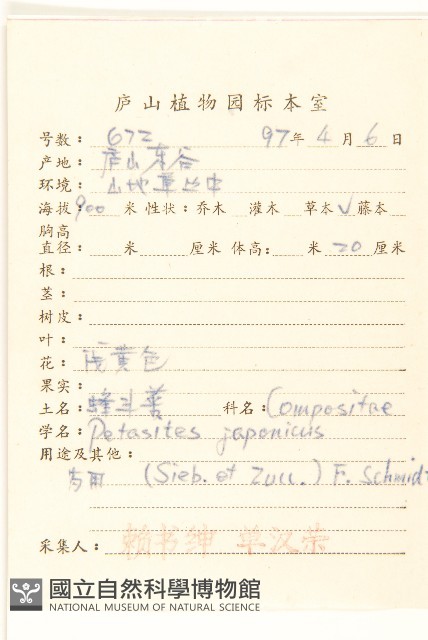 庐山植物园标本室
号数: 672 97年 4月 6日
产地: 庐山东谷
环境: 山地草丛中
海拔: 900 米 性状: 乔木 灌木 草本 √ 藤本
胸高
直径: 米 厘米 体高: 米 20 厘米
根:
茎:
树皮:
叶:
花: 浅黄色
果实:
土名: 蜂斗 科名: Compositae
学名: Petasites japonicus
用途及其他:
(Sieb. et Zucc.) F. Schmidt
采集人: 赖书绅 单汉荣
國立自然科學博物館
NATIONAL MUSEUM OF NATURAL SCIENCE